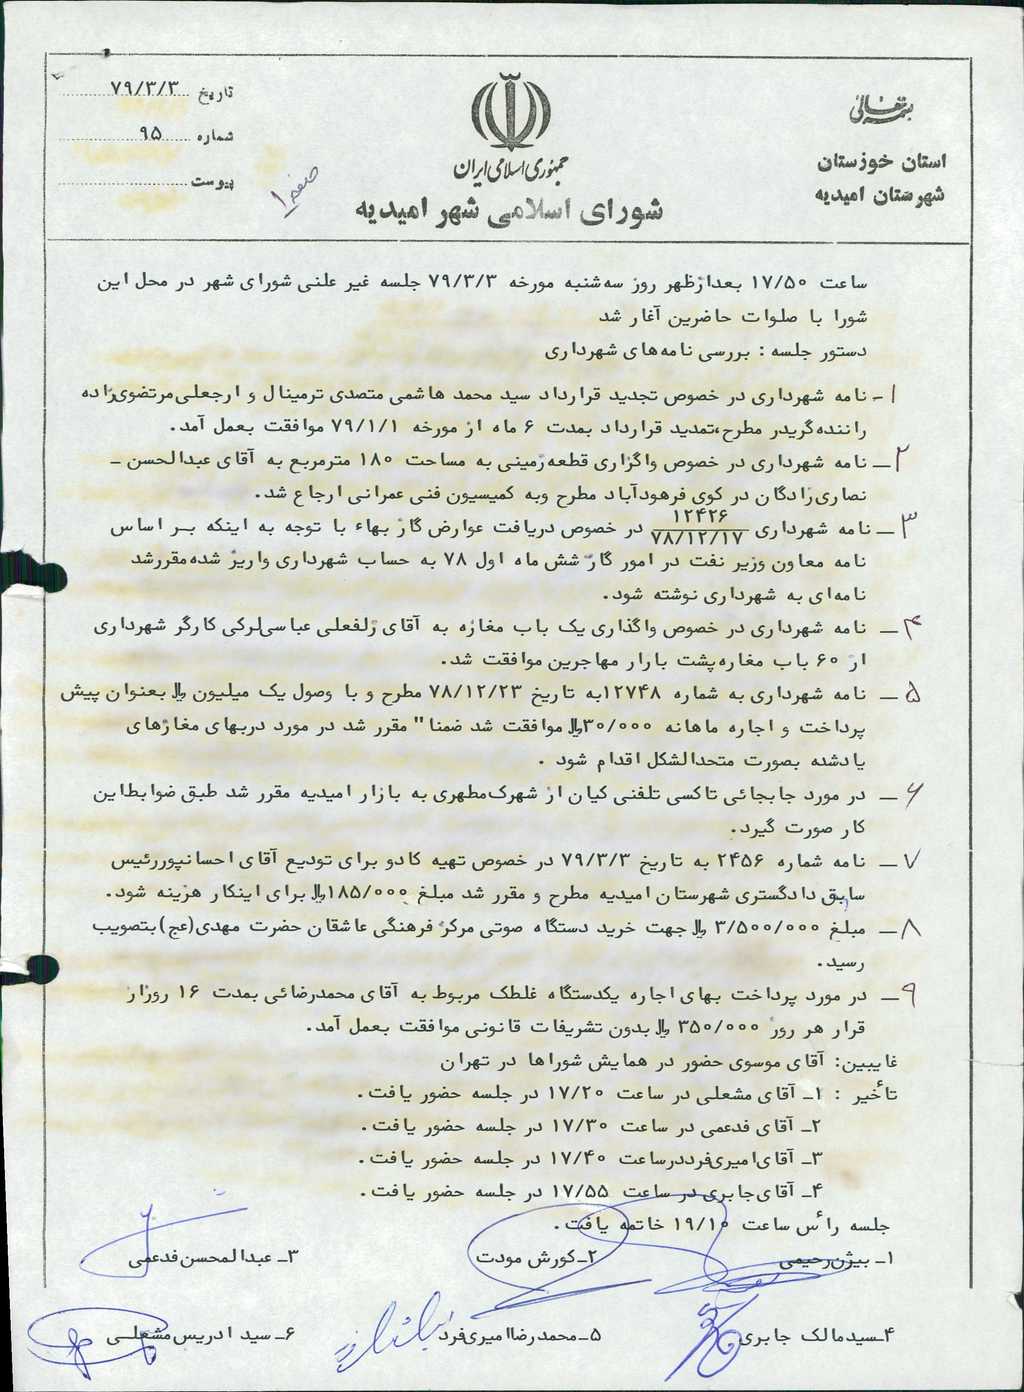 بسمه تعالی
استان خوزستان
شهرستان امیدیه
جمهوری اسلامی ایران
شورای اسلامی شهر امیدیه
تاریخ ۷۹/۳/۳
شماره ۹۵
پیوست
صفحه ۱
ساعت ۱۷/۵۰ بعدازظهر روز سه‌شنبه مورخه ۷۹/۳/۳ جلسه غیر علنی شورای شهر در محل این
شورا با صلوات حاضرین آغاز شد
دستور جلسه : بررسی نامه‌های شهرداری
۱- نامه شهرداری در خصوص تجدید قرارداد سید محمد هاشمی متصدی ترمینال و ارجعلی‌مرتضوی‌زاده
راننده‌گریدر مطرح،تمدید قرارداد بمدت ۶ ماه از مورخه ۷۹/۱/۱ موافقت بعمل آمد.
۲ـ نامه شهرداری در خصوص واگزاری قطعه‌زمینی به مساحت ۱۸۰ مترمربع به آقای عبدالحسن ـ
نصاری‌زادگان در کوی فرهودآباد مطرح وبه کمیسیون فنی عمرانی ارجاع شد.
۳ـ نامه شهرداری ۱۲۴۲۶/۷۸/۱۲/۱۷ در خصوص دریافت عوارض گاز بهاء با توجه به اینکه بر اساس
نامه معاون وزیر نفت در امور گاز شش ماه اول ۷۸ به حساب شهرداری واریز شده‌مقررشد
نامه‌ای به شهرداری نوشته شود.
۴ـ نامه شهرداری در خصوص واگذاری یک باب مغازه به آقای زلفعلی عباسی‌لرکی کارگر شهرداری
از ۶۰ باب مغازه‌پشت بازار مهاجرین موافقت شد.
۵ ـ نامه شهرداری به شماره ۱۲۷۴۸به تاریخ ۷۸/۱۲/۲۳ مطرح و با وصول یک میلیون ﷼ بعنوان پیش
پرداخت و اجاره ماهانه ۳۰/۰۰۰﷼ موافقت شد ضمنا" مقرر شد در مورد دربهای مغازهای
یادشده بصورت متحدالشکل اقدام شود .
۶ ـ در مورد جابجائی تاکسی تلفنی کیان از شهرک‌مطهری به بازار امیدیه مقرر شد طبق ضوابط‌این
کار صورت گیرد.
۷ ـ نامه شماره ۲۴۵۶ به تاریخ ۷۹/۳/۳ در خصوص تهیه کادو برای تودیع آقای احسانپوررئیس
سابق دادگستری شهرستان امیدیه مطرح و مقرر شد مبلغ ۱۸۵/۰۰۰﷼ برای اینکار هزینه شود.
۸ ـ مبلغ ۳/۵۰۰/۰۰۰ ﷼ جهت خرید دستگاه صوتی مرکز فرهنگی عاشقان حضرت مهدی(عج)بتصویب
رسید.
۹ـ در مورد پرداخت بهای اجاره یکدستگاه غلطک مربوط به آقای محمدرضائی بمدت ۱۶ روزاز
قرار هر روز ۳۵۰/۰۰۰ ﷼ بدون تشریفات قانونی موافقت بعمل آمد.
غایبین: آقای موسوی حضور در همایش شوراها در تهران
تأخیر : ۱ـ آقای مشعلی در ساعت ۱۷/۲۰ در جلسه حضور یافت.
۲ـ آقای فدعمی در ساعت ۱۷/۳۰ در جلسه حضور یافت.
۳ـ آقای‌امیری‌فرددرساعت ۱۷/۴۰ در جلسه حضور یافت.
۴ـ آقای‌جابری در ساعت ۱۷/۵۵ در جلسه حضور یافت.
جلسه رأس ساعت ۱۹/۱۰ خاتمه یافت.
۱ـ بیژن‌رحیمی ۲ـ کورش مودت ۳ـ عبدالمحسن‌فدعمی
۴ـسیدمالک جابری ۵ـ محمدرضاامیری‌فرد ۶ـ سید ادریس‌مشعلـی